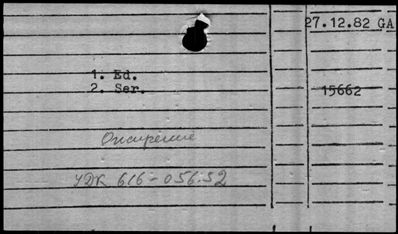 27.12.82 GA
1. Ed.
2. Ser. 15662
УДК 616-056.52